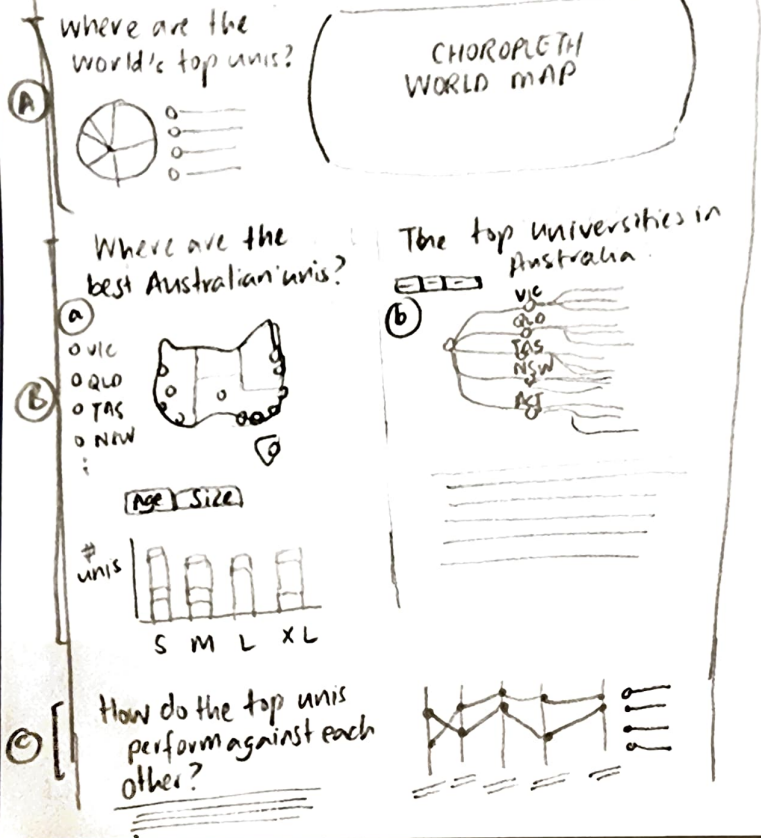 Where are the
world's top unis?
CHOROPLETH
WORLD MAP
A
Where are the
best Australian unis?
a
VIC
QLD
TAS
NSW
Age Size
#
unis
S M L XL
B
The top universities in
Australia
b
VIC
QLD
TAS
NSW
ACT
C
How do the top unis
perform against each
other?